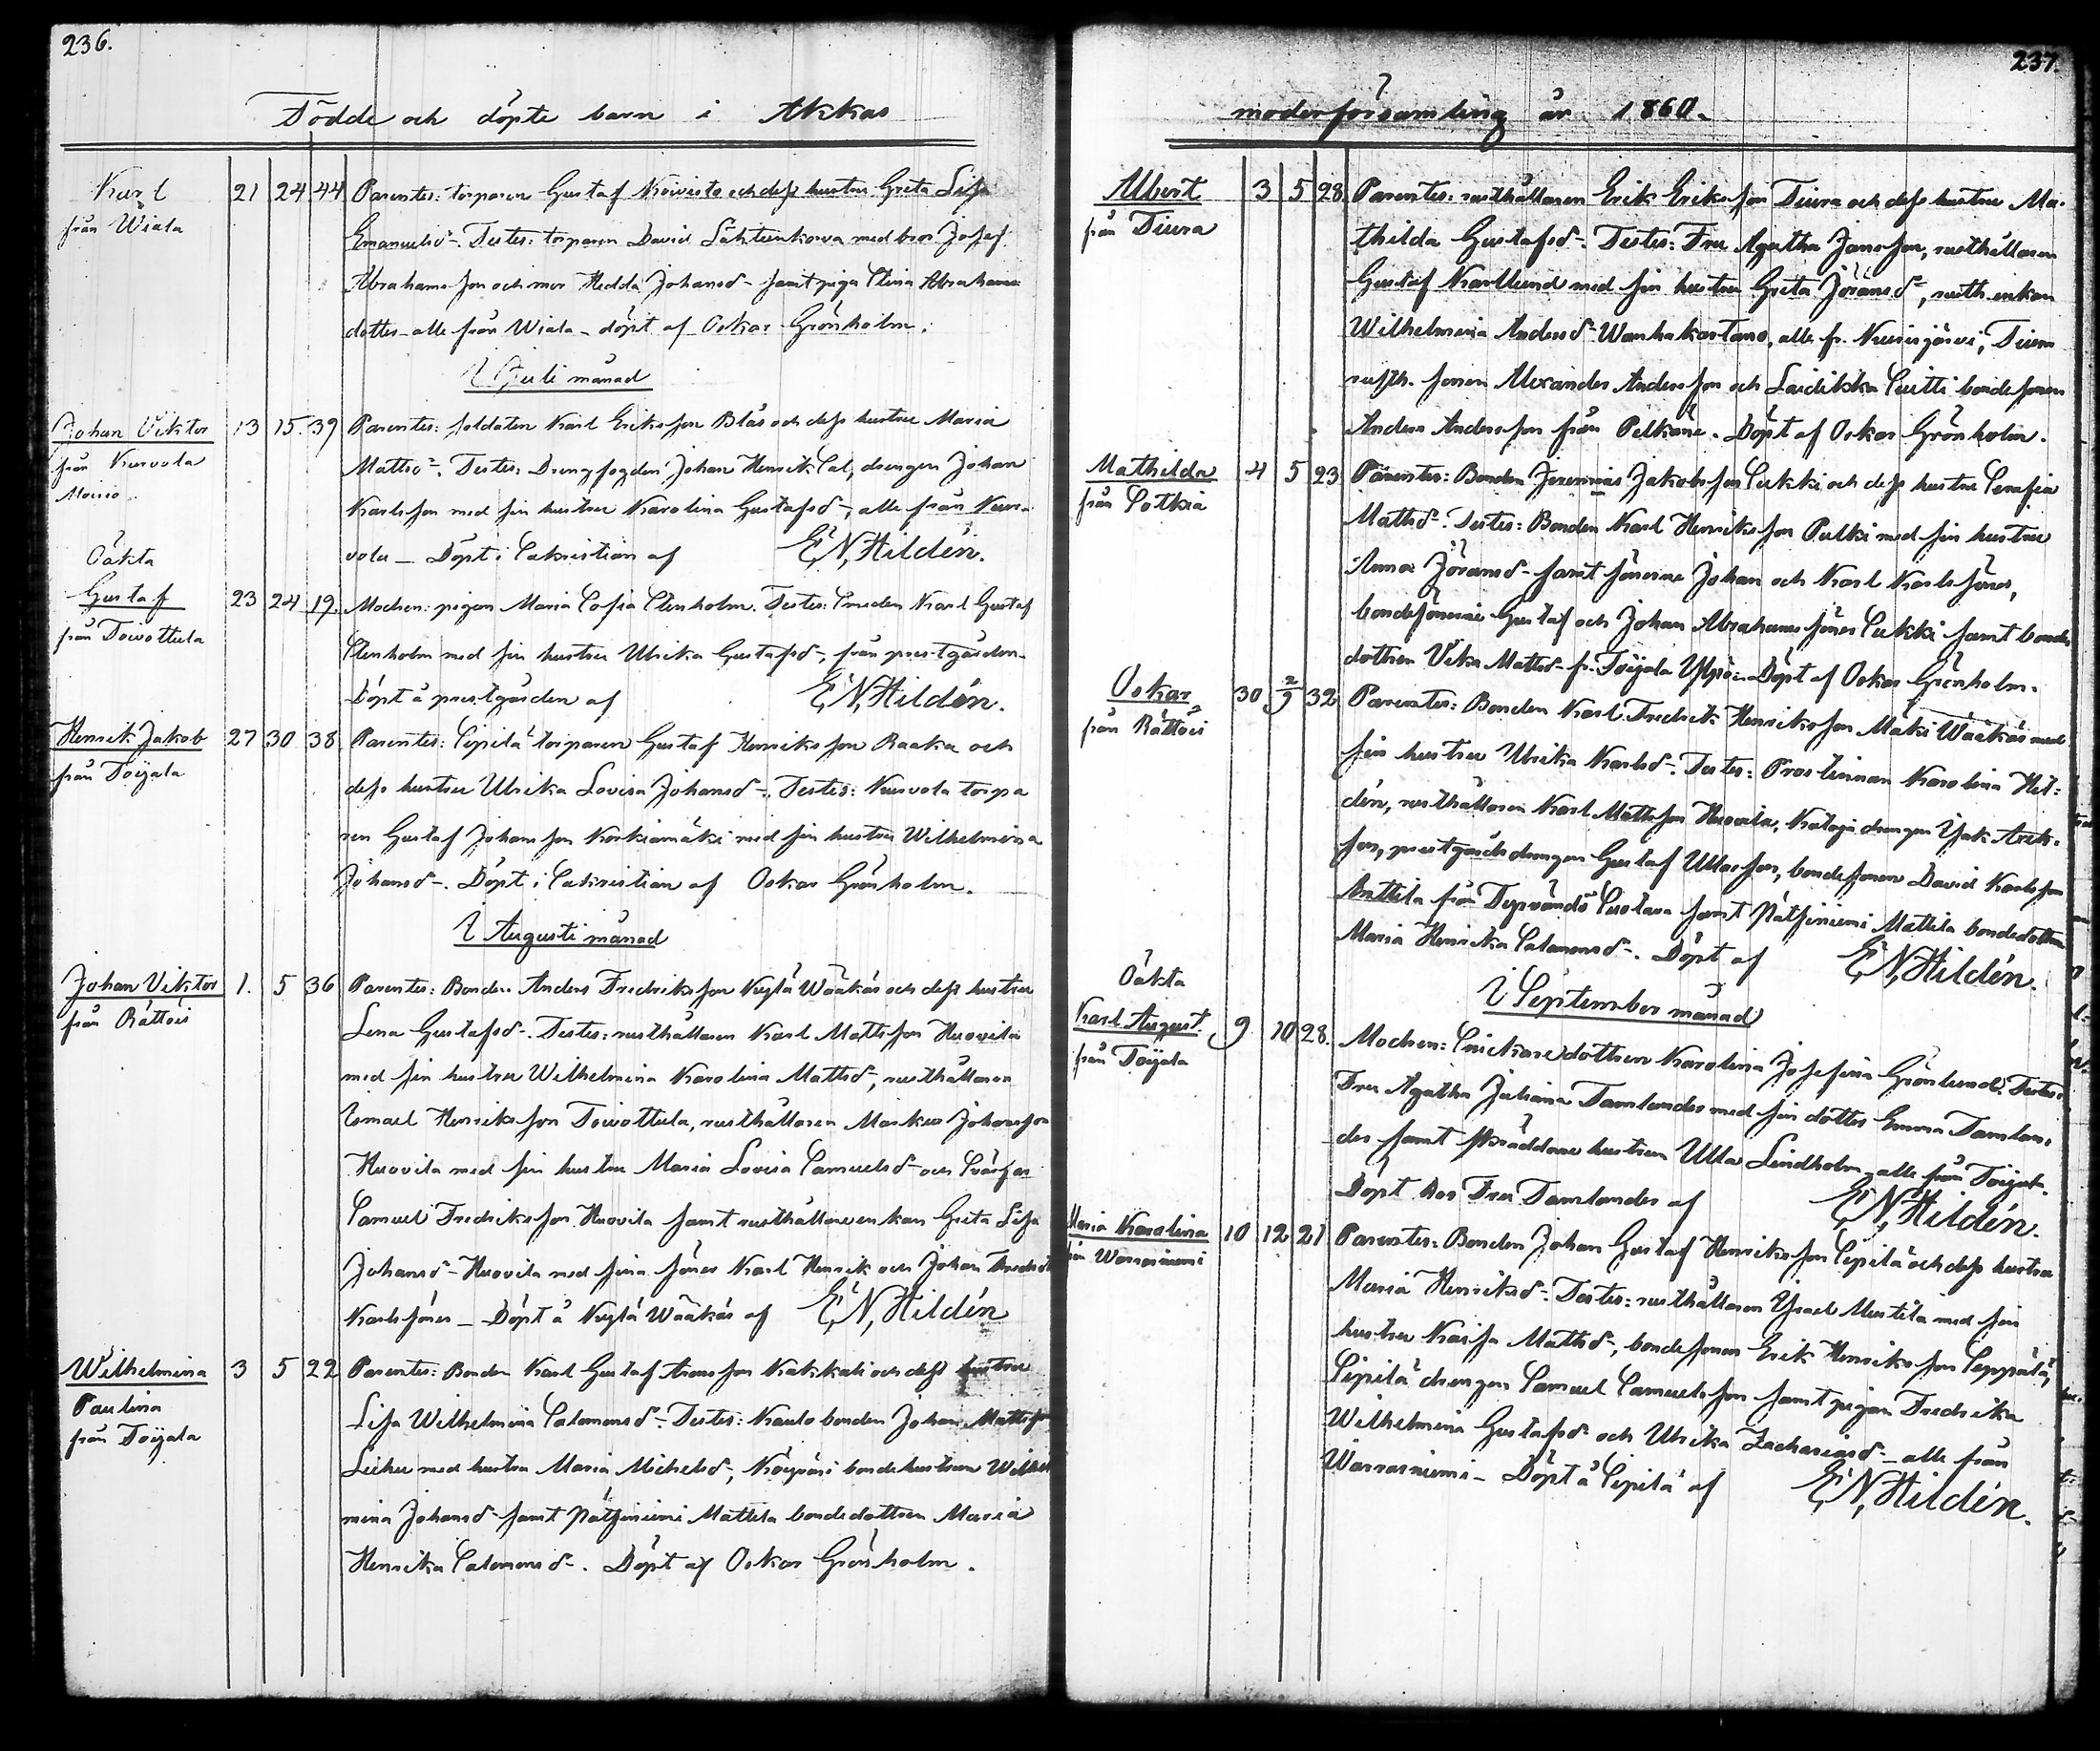 236.
Födde och döpte barn i Akkas
Karl 21 24 44 Parentes: torparen Gustaf Koivisto och dess hustru Greta Lisa
från Wiala
Emanuelsd-. Testes: torparen David Lähteenkorva med bror Josef
Abrahamsson och mor Hedda Johansd- samt piga Stina Abrahams
dotter alle från Wiala - döpt af Oskar Grönholm.
I Juli månad
Johan Viktor 13 15. 39 Parentes: soldaten Karl Eriksson Blås och dess hustru Maria
från Kurvola
Moisio
Mattsd-. Testes: Drengfogden Johan Henrik Sal, drengen Johan
Karlsson med sin hustru Karolina Gustafsd-, alle från Kur-
vola - Döpt i Sakristian af E. N. Hildén.
Oäkta
Gustaf 23 24 19. Modren: pigan Maria Sofia Stenholm. Testes: Smeden Karl Gustaf
från Toivottula
Stenholm med sin hustru Ulrika Gustafsd-, från prestgården.
Döpt å prestgården af E. N. Hildén.
Henrik Jakob 27 30 38 Parentes: Sipilä torparen Gustaf Henriksson Raaka och
från Toijala
dess hustru Ulrika Lovisa Johansd-. Testes: Kurvola torpa
ren Gustaf Johansson Korkiamäki med sin hustru Wilhelmina
Johansd-. Döpt i Sakristian af Oskar Grönholm.
I Augusti månad
Johan Viktor 1. 5 36 Parentes: Bonden Anders Fredriksson Kylä Wääkäs och dess hustru
från Rättöis
Lena Gustafsd-. Testes: rusthållaren Karl Mattsson Huovila
med sin hustru Wilhelmina Karolina Mattsd-, rusthållaren
Ismael Henriksson Toivottula, rusthållaren Markus Johansson
Huovila med sin hustru Maria Lovisa Samuelsd- och Svärfar
Samuel Fredriksson Huovila samt rusthållareenkan Greta Lisa
Johansd- Huovila med sina söner Karl Henrik och Johan Fredrik
Karlssöner - Döpt å Kylä Wääkäs af E. N. Hildén
Wilhelmina 3 5 22 Parentes: Bonden Karl Gustaf Aronsson Kakkali och dess hustru
Paulina
från Toijala
Lisa Wilhelmina Salomonsd-. Testes: Kaulo bonden Johan Mattsson
med hustru Maria Michelsd-, bondehustrun Wilhel
mina Johansd- samt Pätsiniemi Mattila bondedottren Maria
Henrika Salomonsd-. Döpt af Oskar Grönholm.
237.
moderförsamling år 1860.
Albert 3 5 28 Parentes: rusthållaren Erik Eriksson Tiura och dess hustru Ma-
från Tiura
thilda Gustafsd-. Testes: Fru Agatha Jansson, rusthållaren
Gustaf Karllund med sin hustru Greta Jöransd-, rusth. enkan
Wilhelmina Andersd- Wanhakartano, alle fr. Kurisjärvi, Tiura
rusth. sonen Alexander Andersson och bondesonen
Anders Andersson från Pelkäne. Döpt af Oskar Grönholm.
Mathilda 4 5 23 Parentes: Bonden Jeremias Jakobsson Sukki och dess hustru Serafia
från Sotkia
Mattsd-. Testes: Bonden Karl Henriksson Pulki med sin hustru
Anna Jöransd- samt sönerne Johan och Karl Karlssöner,
bondesönerne Gustaf och Johan Abrahamssöner Sukki samt bonde
dottren Vika Mattsd- fr. Toijala Yppö. Döpt af Oskar Grönholm.
Oskar 30 2/9 32 Parentes: Bonden Karl Fredrik Henriksson Mäki Wääkäs med
från Rättöis
sin hustru Ulrika Karlsd-. Testes: Prostinnan Karolina Hil-
dén, rusthållaren Karl Mattsson Huovila, drengen Isak
son, prestgårdsdrengen Gustaf Ullasson, bondesonen David Karlsson
Anttila från samt Pätsiniemi Mattila bondedottren
Maria Henrika Salomonsd-. Döpt af E. N. Hildén.
I September månad
Oäkta
Karl August 9 10 28. Modren: Snickaredottren Karolina Josefina Grönlund. Testes:
från Toijala
Fru Agatha Juliana Tamlander med sin dotter Emma Tamlan-
der samt skräddare hustrun Ulla Lindholm, alle från Toijala.
Döpt hos Fru Tamlander af E. N. Hildén.
Maria Karolina 10 12 21 Parentes: Bonden Johan Gustaf Henriksson Sipilä och dess hustru
från Warrasniemi
Maria Henriksd-. Testes: rusthållaren Israel Mustila med sin
hustru Kaisa Mattsd-, bondesonen Erik Henriksson Seppälä,
Sipilä drengen Samuel Samuelsson samt pigan Fredrika
Wilhelmina Gustafsd- och Ulrika Zachariasd- alle från
Warrasniemi - Döpt å Sipilä af E. N. Hildén.